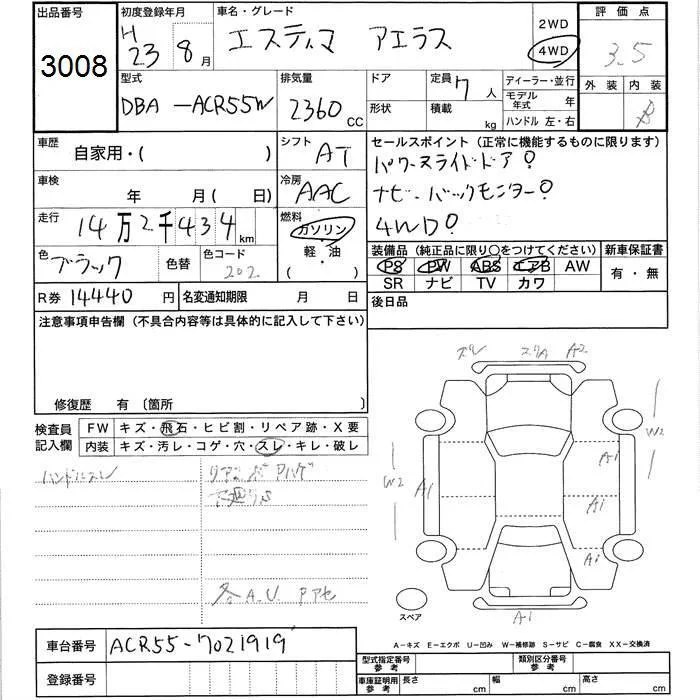 出品番号
3008
初度登録年月
H 23 8月
車名・グレード
エスティマ アエラス
2WD
4WD
評価点
3.5
外装 内装
B
型式
DBA-ACR55W
排気量
2360 CC
ドア
形状
定員 7 人
積載 kg
ディーラー・並行
モデル年式 年
ハンドル 左・右
車歴
自家用・( )
シフト
AT
セールスポイント(正常に機能するものに限ります)
パワースライドドア!
ナビ・バックモニター!
4WD!
車検
年 月(日)
冷房
AAC
走行
14万2千434km
燃料
ガソリン
軽・油
( )
色
ブラック
色替
色コード
202
装備品(純正品に限り○をつけてください)
新車保証書
PS PW ABS エアB AW
SR ナビ TV カワ
有・無
R券 14440円
名変通知期限 月 日
後日品
注意事項申告欄(不具合内容等は具体的に記入して下さい)
修復歴 有 〔箇所
検査員記入欄
FW キズ・飛石・ヒビ割・リペア跡・X要
内装 キズ・汚レ・コゲ・穴・スレ・キレ・破レ
ハンドルスレ
下廻りS
各A.U
A2
W2
W2
A1
A1
A1
A1
A1
スペア
A-キズ E-エクボ U-凹み W-補修跡 S-サビ C-腐食 XX-交換済
車台番号
ACR55-7021919
登録番号
型式指定番号 参考
類別区分番号 参考
車庫証明用 参考
長さ cm
幅 cm
高さ cm